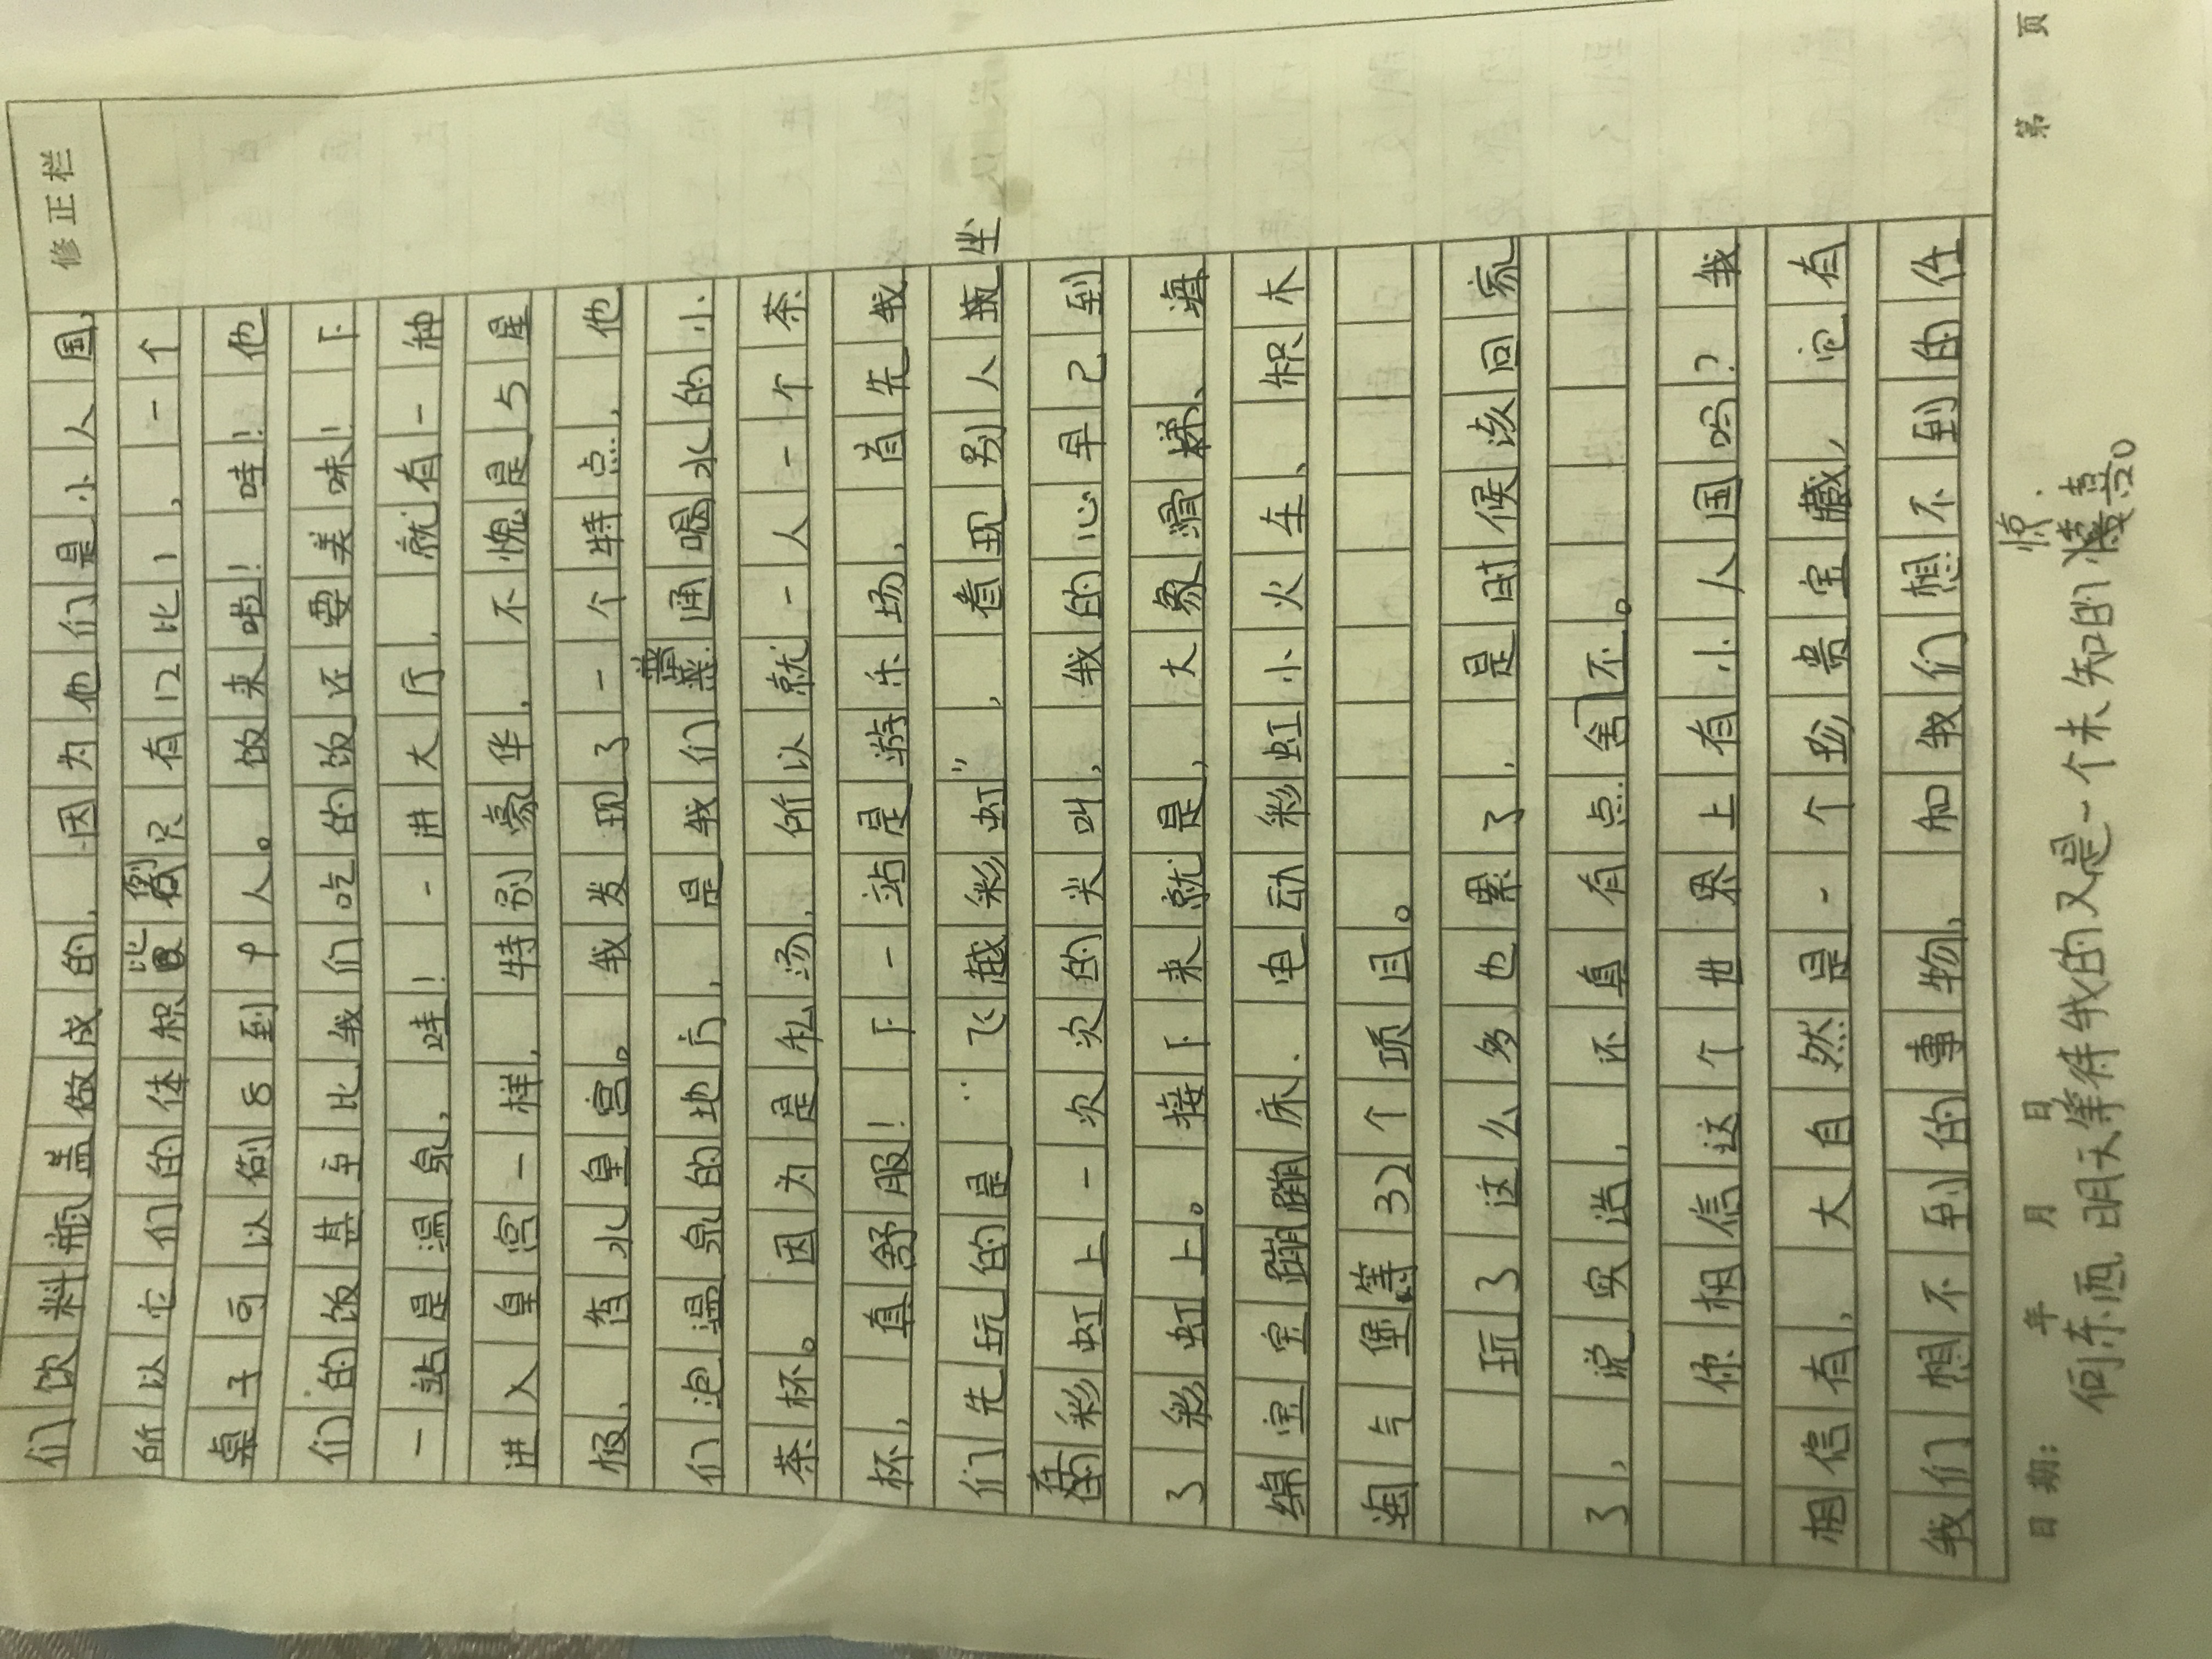 修正栏
们饮料瓶盖做成的，因为他们是小人国，
所以它们的体积比例只有12比1，一个
桌子可以倒8到9人。饭来啦！哇！他
们的饭甚至比我们吃的饭还要美味！下
一站是温泉，哇！一进大厅，就有一种
进入皇宫一样，特别豪华，不愧是5星
极，连水皇宫。我发现了一个特点，他
们泡温泉的地方，是我们普通喝水的小
茶杯。因为是私汤，所以就一人一个茶
杯，真舒服！下一站是游乐场，首先我
们先玩的是：飞越彩虹”，看现别人坐
在彩虹上一次次的尖叫，我的心早已到
了彩虹上。接下来就是，大象滑梯、海
绵宝宝蹦蹦床、电动彩虹小火车、积木
淘气堡等32个项目。
玩了这么多也累了，是时候该回家
了，说实话，还真有点舍不。
你相信这个世界上有小人国吗？我
相信有，大自然是一个珍贵宝藏，它有
我们想不到的事物，和我们想不到的任
何东西明天等待我的又是一个未知的惊喜。
日期： 年 月 日 第 页